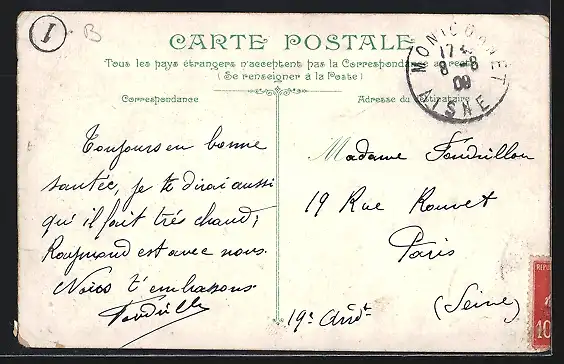 1
B
CARTE POSTALE
Tous les pays étrangers n'acceptent pas la Correspondance au recto
(Se renseigner à la Poste)
MONTCORNET
17
8 -8
09
AISNE
Correspondance
Adresse du destinataire
Toujours en bonne
santée, je te dirai aussi
qu'il fait très chaud,
Raymond est avec nous.
Nous t'embrassons.
Fondrillon
Madame Fondrillon
19 Rue Rouvet
Paris
(Seine)
19e Arrdt
10